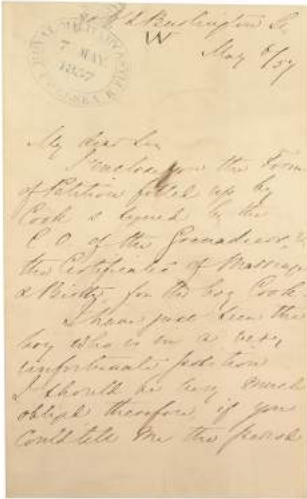 Burlington St.
W
May 6/57
ROYAL MILITARY
7 MAY
1857
CHELSEA
My dear Sir
I enclose you the Form
of Petition filled up by
Cook & signed by the
C O of the Grenadiers, &
the Certificates of Marriage
& Birth for the boy Cook
I have just seen the
boy who is in a very
unfortunate position
I should be very much
obliged therefore if you
could tell me the period